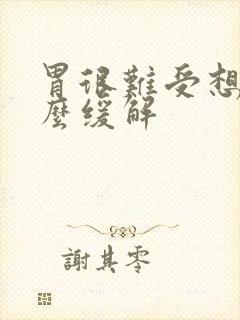 胃很難受想
麼缓解
謝其零